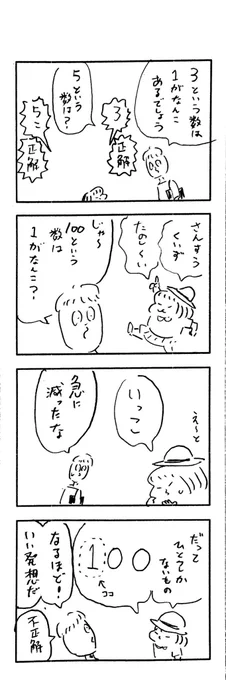 3という数は
1がなんこ
あるでしょう
3
正解
5という
数は?
5こ
正解
さんすう
くいず
たのしくい
じゃ〜
100という
数は
1がなんこ?
え〜と
いっこ
急に
減ったな
だって
ひとつしか
ないもの
100
ココ
なるほど!
いい発想だ
不正解